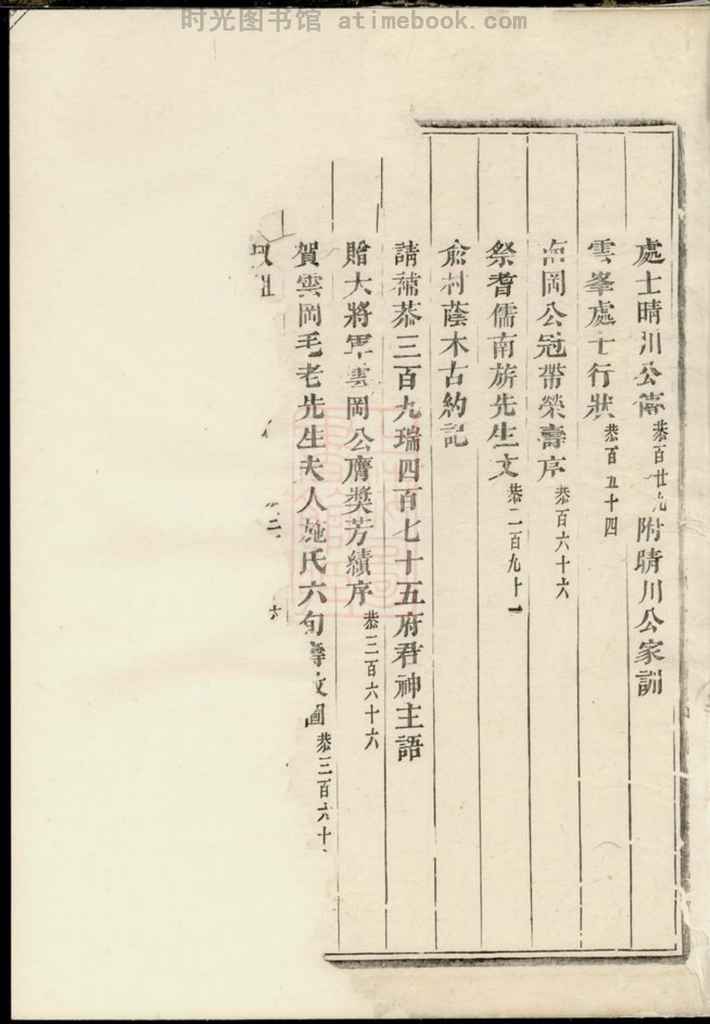 时光图书馆 atimebook.com
處士晴川公傳 恭百廿九 附晴川公家訓
雲峯處士行狀 恭百五十四
南岡公冠帶榮壽序 恭百六十六
祭耆儒南旂先生文 恭二百九十一
俞村蔭木古約記
請補恭三百九瑞四百七十五府君神主語
贈大將軍雲岡公膺獎芳績序 恭三百六十六
賀雲岡毛老先生夫人施氏六旬壽文圖 恭三百六十
二 六